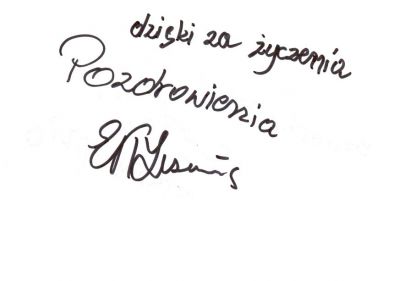 dzięki za życzenia
Pozdrowienia